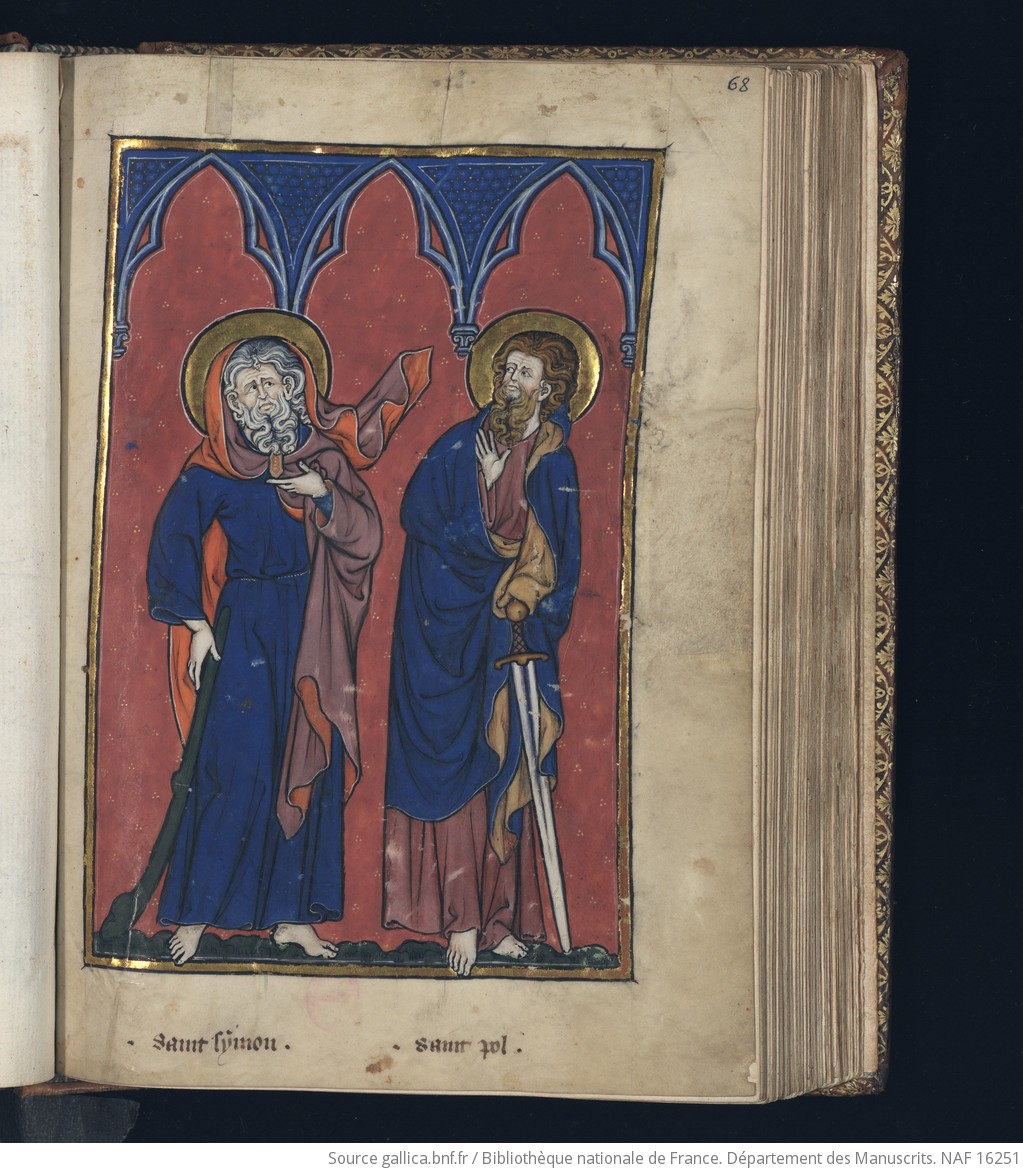 68
· saint sẏmon · · saint pol ·
Source gallica.bnf.fr / Bibliothèque nationale de France. Département des Manuscrits. NAF 16251